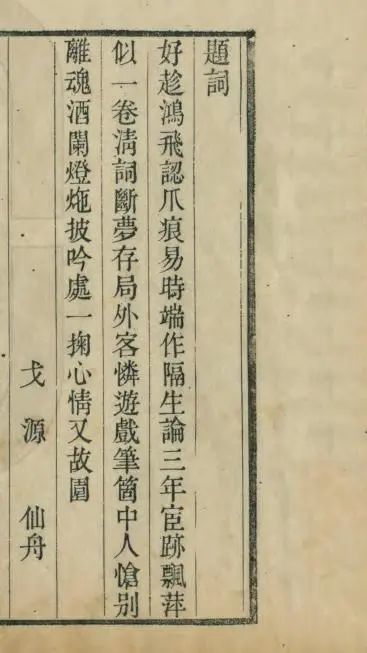 題詞
好趁鴻飛認爪痕易時端作隔生論三年宦跡飄萍
似一卷清詞斷夢存局外客憐遊戲筆箇中人愴别
離魂酒闌燈灺披吟處一掬心情又故園
戈源 仙舟